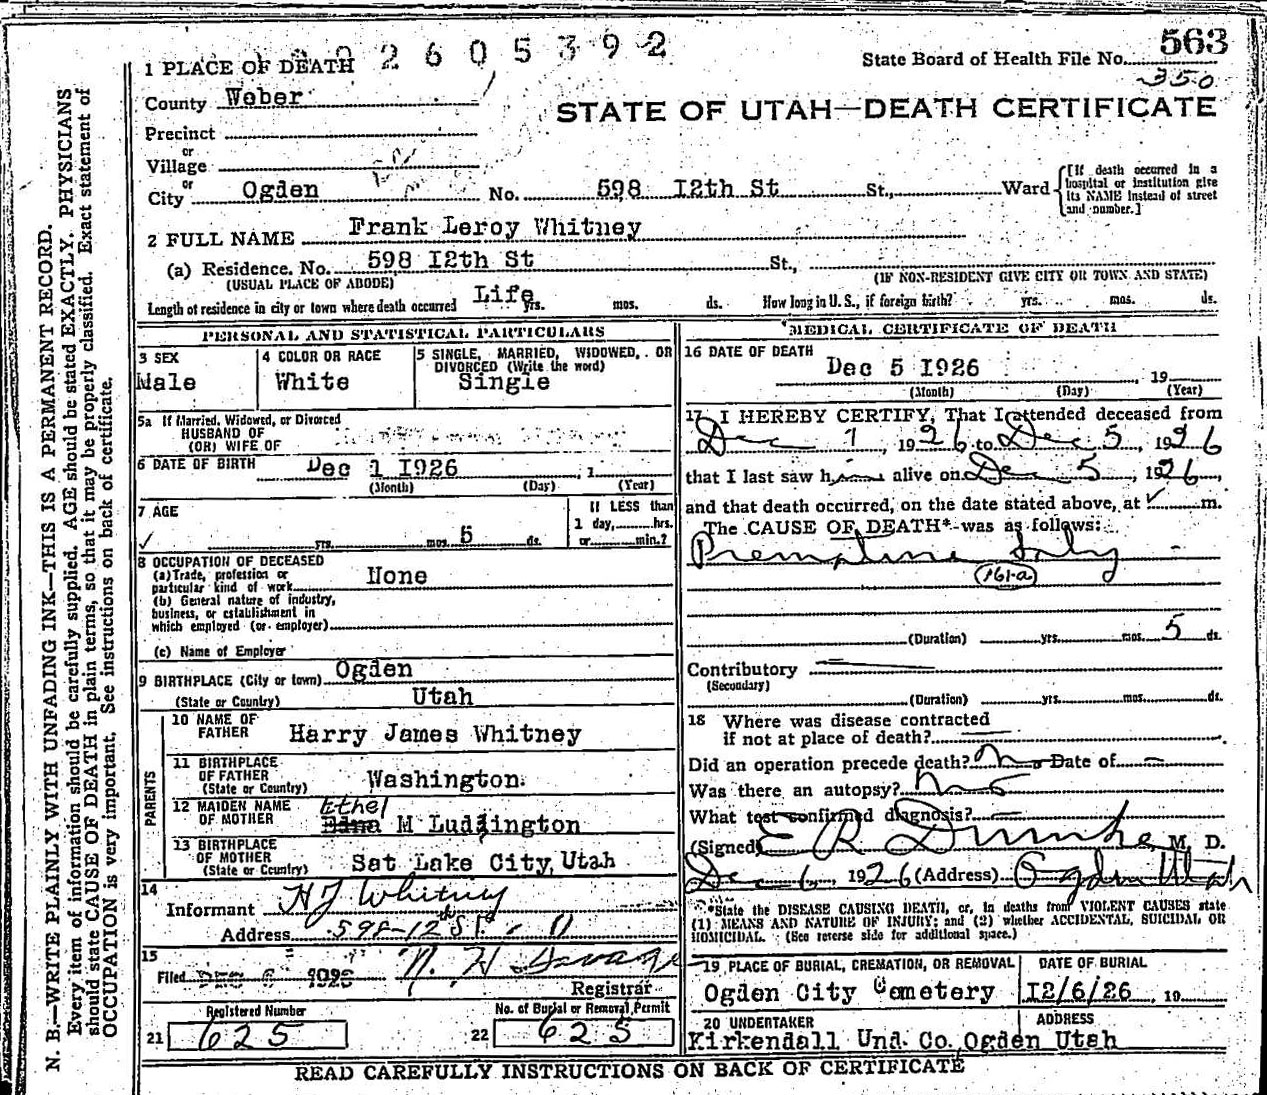 2605392
563
State Board of Health File No.
350
1 PLACE OF DEATH
County Weber
STATE OF UTAH—DEATH CERTIFICATE
Precinct
or
Village
or
City Ogden No. 598 I2th St St., Ward
[If death occurred in a hospital or institution give its NAME instead of street and number.]
2 FULL NAME Frank Leroy Whitney
(a) Residence. No. 598 I2th St St.,
(USUAL PLACE OF ABODE) (IF NON-RESIDENT GIVE CITY OR TOWN AND STATE)
Length of residence in city or town where death occurred Life yrs. mos. ds. How long in U. S., if foreign birth? yrs. mos. ds.
PERSONAL AND STATISTICAL PARTICULARS
3 SEX
Male
4 COLOR OR RACE
White
5 SINGLE, MARRIED, WIDOWED, OR
DIVORCED (Write the word)
Single
5a If Married, Widowed, or Divorced
HUSBAND OF
(OR) WIFE OF
6 DATE OF BIRTH Dec 1 I926 , 1
(Month) (Day) (Year)
7 AGE
yrs. mos. 5 ds.
If LESS than
1 day, hrs.
or min.?
8 OCCUPATION OF DECEASED
(a) Trade, profession or
particular kind of work None
(b) General nature of industry,
business, or establishment in
which employed (or employer)
(c) Name of Employer
9 BIRTHPLACE (City or town) Ogden
(State or Country) Utah
PARENTS
10 NAME OF
FATHER Harry James Whitney
11 BIRTHPLACE
OF FATHER
(State or Country) Washington
12 MAIDEN NAME
OF MOTHER Ethel
Edna M Luddington
13 BIRTHPLACE
OF MOTHER
(State or Country) Sat Lake City, Utah
14
Informant H J Whitney
Address 598-12th St.
15
Filed DEC 6 1926 N. H. Savage
Registrar
Registered Number
21 625
No. of Burial or Removal Permit
22 625
MEDICAL CERTIFICATE OF DEATH
16 DATE OF DEATH
Dec 5 I926 , 19
(Month) (Day) (Year)
17 I HEREBY CERTIFY, That I attended deceased from
Dec 1, 1926 to Dec 5, 1926
that I last saw him alive on Dec 5, 1926,
and that death occurred, on the date stated above, at m.
The CAUSE OF DEATH* was as follows:
161-a
(Duration) yrs. mos. 5 ds.
Contributory
(Secondary)
(Duration) yrs. mos. ds.
18 Where was disease contracted
if not at place of death?
Did an operation precede death? no Date of
Was there an autopsy? no
What test confirmed diagnosis?
(Signed) E R Dumke, M. D.
Dec 6, 1926 (Address) Ogden Utah
*State the DISEASE CAUSING DEATH, or, in deaths from VIOLENT CAUSES state
(1) MEANS AND NATURE OF INJURY; and (2) whether ACCIDENTAL, SUICIDAL OR
HOMICIDAL. (See reverse side for additional space.)
19 PLACE OF BURIAL, CREMATION, OR REMOVAL
Ogden City Cemetery
DATE OF BURIAL
I2/6/26 , 19
20 UNDERTAKER ADDRESS
Kirkendall Und. Co. Ogden Utah
READ CAREFULLY INSTRUCTIONS ON BACK OF CERTIFICATE
N. B.—WRITE PLAINLY WITH UNFADING INK—THIS IS A PERMANENT RECORD.
Every item of information should be carefully supplied. AGE should be stated EXACTLY. PHYSICIANS
should state CAUSE OF DEATH in plain terms, so that it may be properly classified. Exact statement of
OCCUPATION is very important. See instructions on back of certificate.